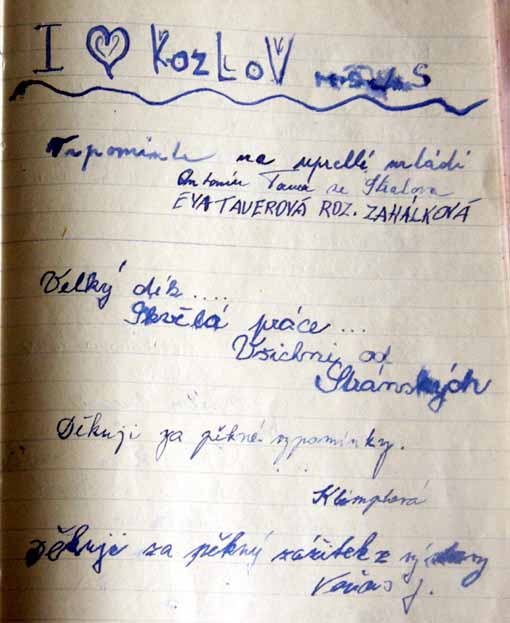 I ♡ KozLoV S
Vzpomínka na uprchlé mládí
Antonín Tauer ze Skalova
EVA TAUEROVÁ ROZ. ZAHÁLKOVÁ
Velký dík ....
Skvělá práce ...
Všichni od
Stránských
Děkuji za pěkné vzpomínky.
Klimplová
Děkuji za pěkný zážitek z výstavy
J.